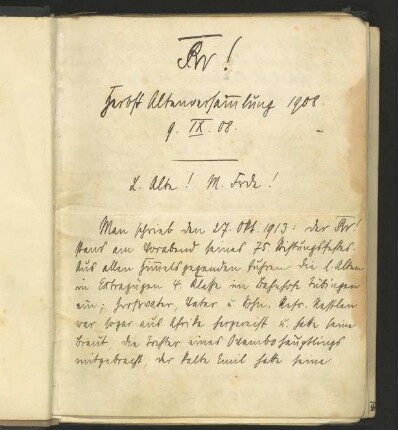 Rr!
Herbst Altenversammlung 1908.
9. IX. 08.
L. Alte! M. Frde!
Man schrieb den 27. Okt. 1913: der Rr!
stand am Vorabend seines 75 Stiftungsfestes.
Aus allen Himmelsgegenden fuhren die l. Alten
in Extrazügen 4. Klasse im Bahnhofe Tübingen
ein; Großvater, Vater u. Sohn.
war sogar aus Afrika hergereist u. hatte seine
Braut, die Tochter eines Ovambohäuptlings
mitgebracht, der kalte Emil hatte seine